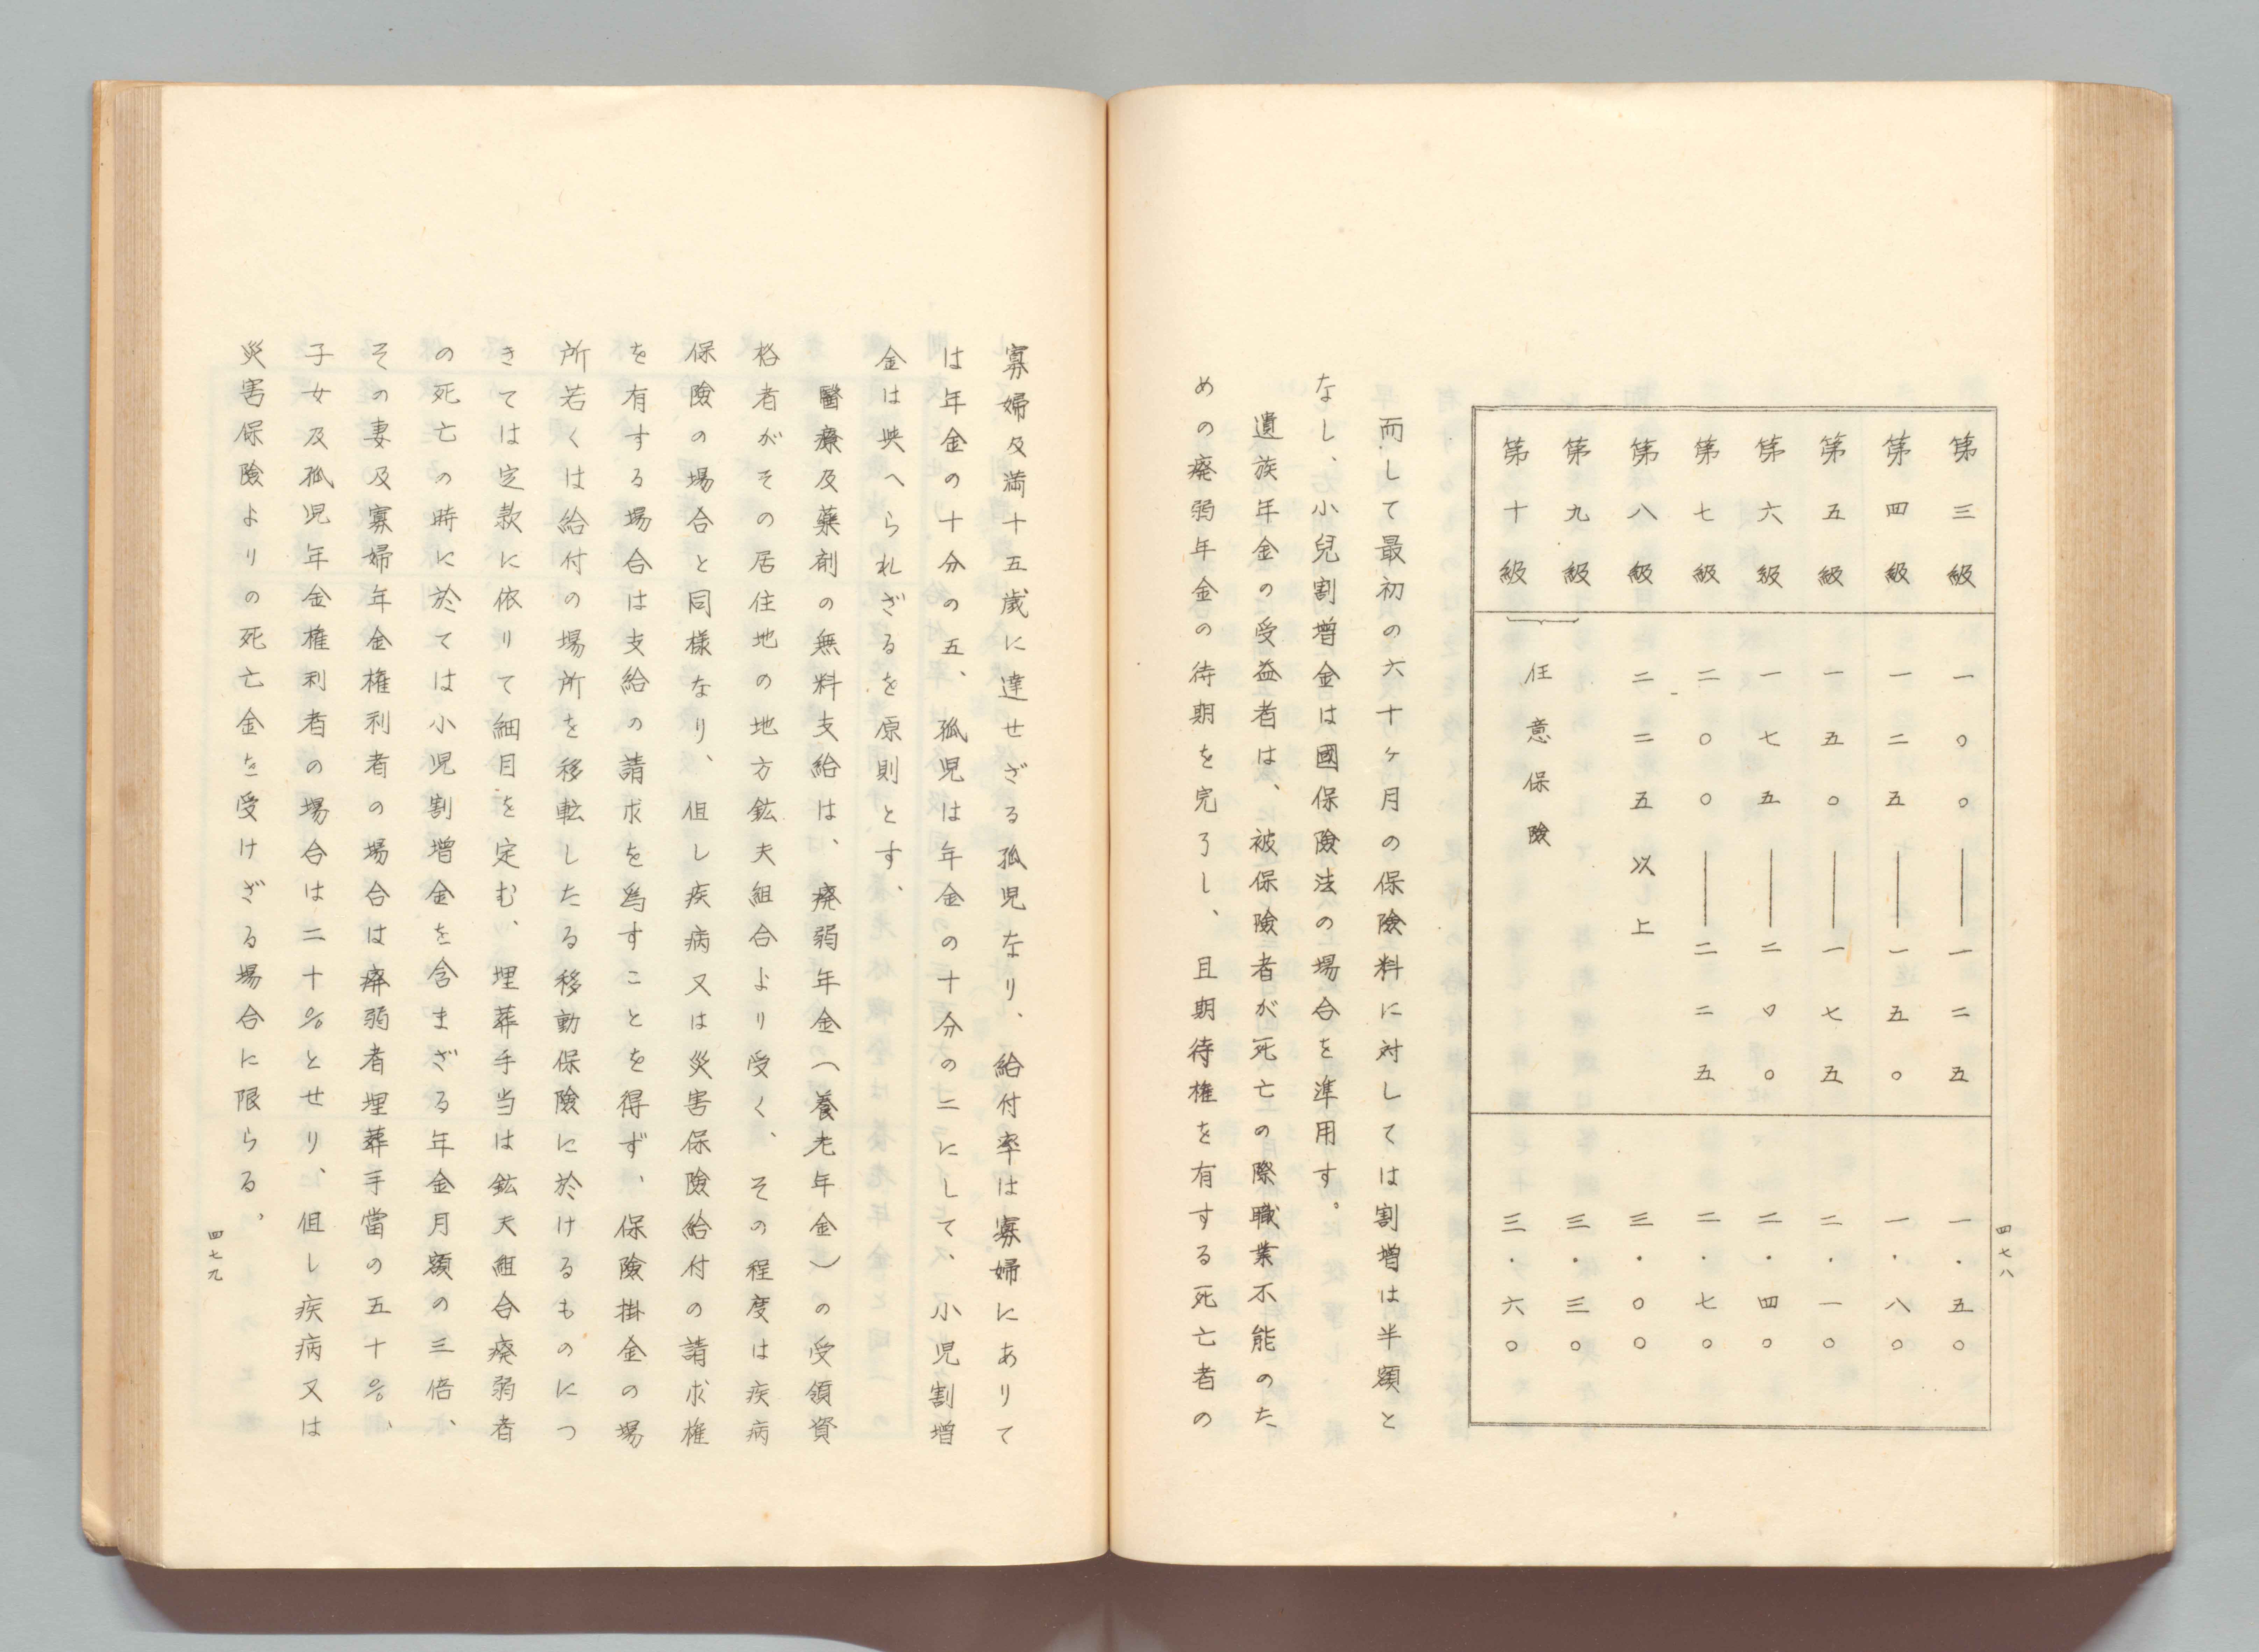 四七八
第三級 一〇〇――一二五 一・五〇
第四級 一二五――一五〇 一・八〇
第五級 一五〇――一七五 二・一〇
第六級 一七五――二〇〇 二・四〇
第七級 二〇〇――二二五 二・七〇
第八級 二二五以上 三・〇〇
第九級 三・三〇
任意保險
第十級 三・六〇
而して最初の六十ヶ月の保險料に対しては割増は半額と
なし、小兒割増金は國保險法の場合を準用す。
遺族年金の受益者は、被保險者が死亡の際職業不能のた
めの廃弱年金の待期を完了し、且期待権を有する死亡者の
寡婦及満十五歳に達せざる孤児なり、給付率は寡婦にありて
は年金の十分の五、孤児は年金の十分の二にして、小児割増
金は与へられざるを原則とす、
醫療及藥剤の無料支給は、廃弱年金(養老年金)の受領資
格者がその居住地の地方鉱夫組合より受く、その程度は疾病
保險の場合と同様なり、但し疾病又は災害保險給付の請求権
を有する場合は支給の請求を為すことを得ず、保險掛金の場
所若くは給付の場所を移転したる移動保險に於けるものにつ
きては定款に依りて細目を定む、埋葬手当は鉱夫組合廃弱者
の死亡の時に於ては小児割増金を含まざる年金月額の三倍、
その妻及寡婦年金権利者の場合は廃弱者埋葬手當の五十%、
子女及孤児年金権利者の場合は二十%とせり、但し疾病又は
災害保險よりの死亡金を受けざる場合に限らる、
四七九